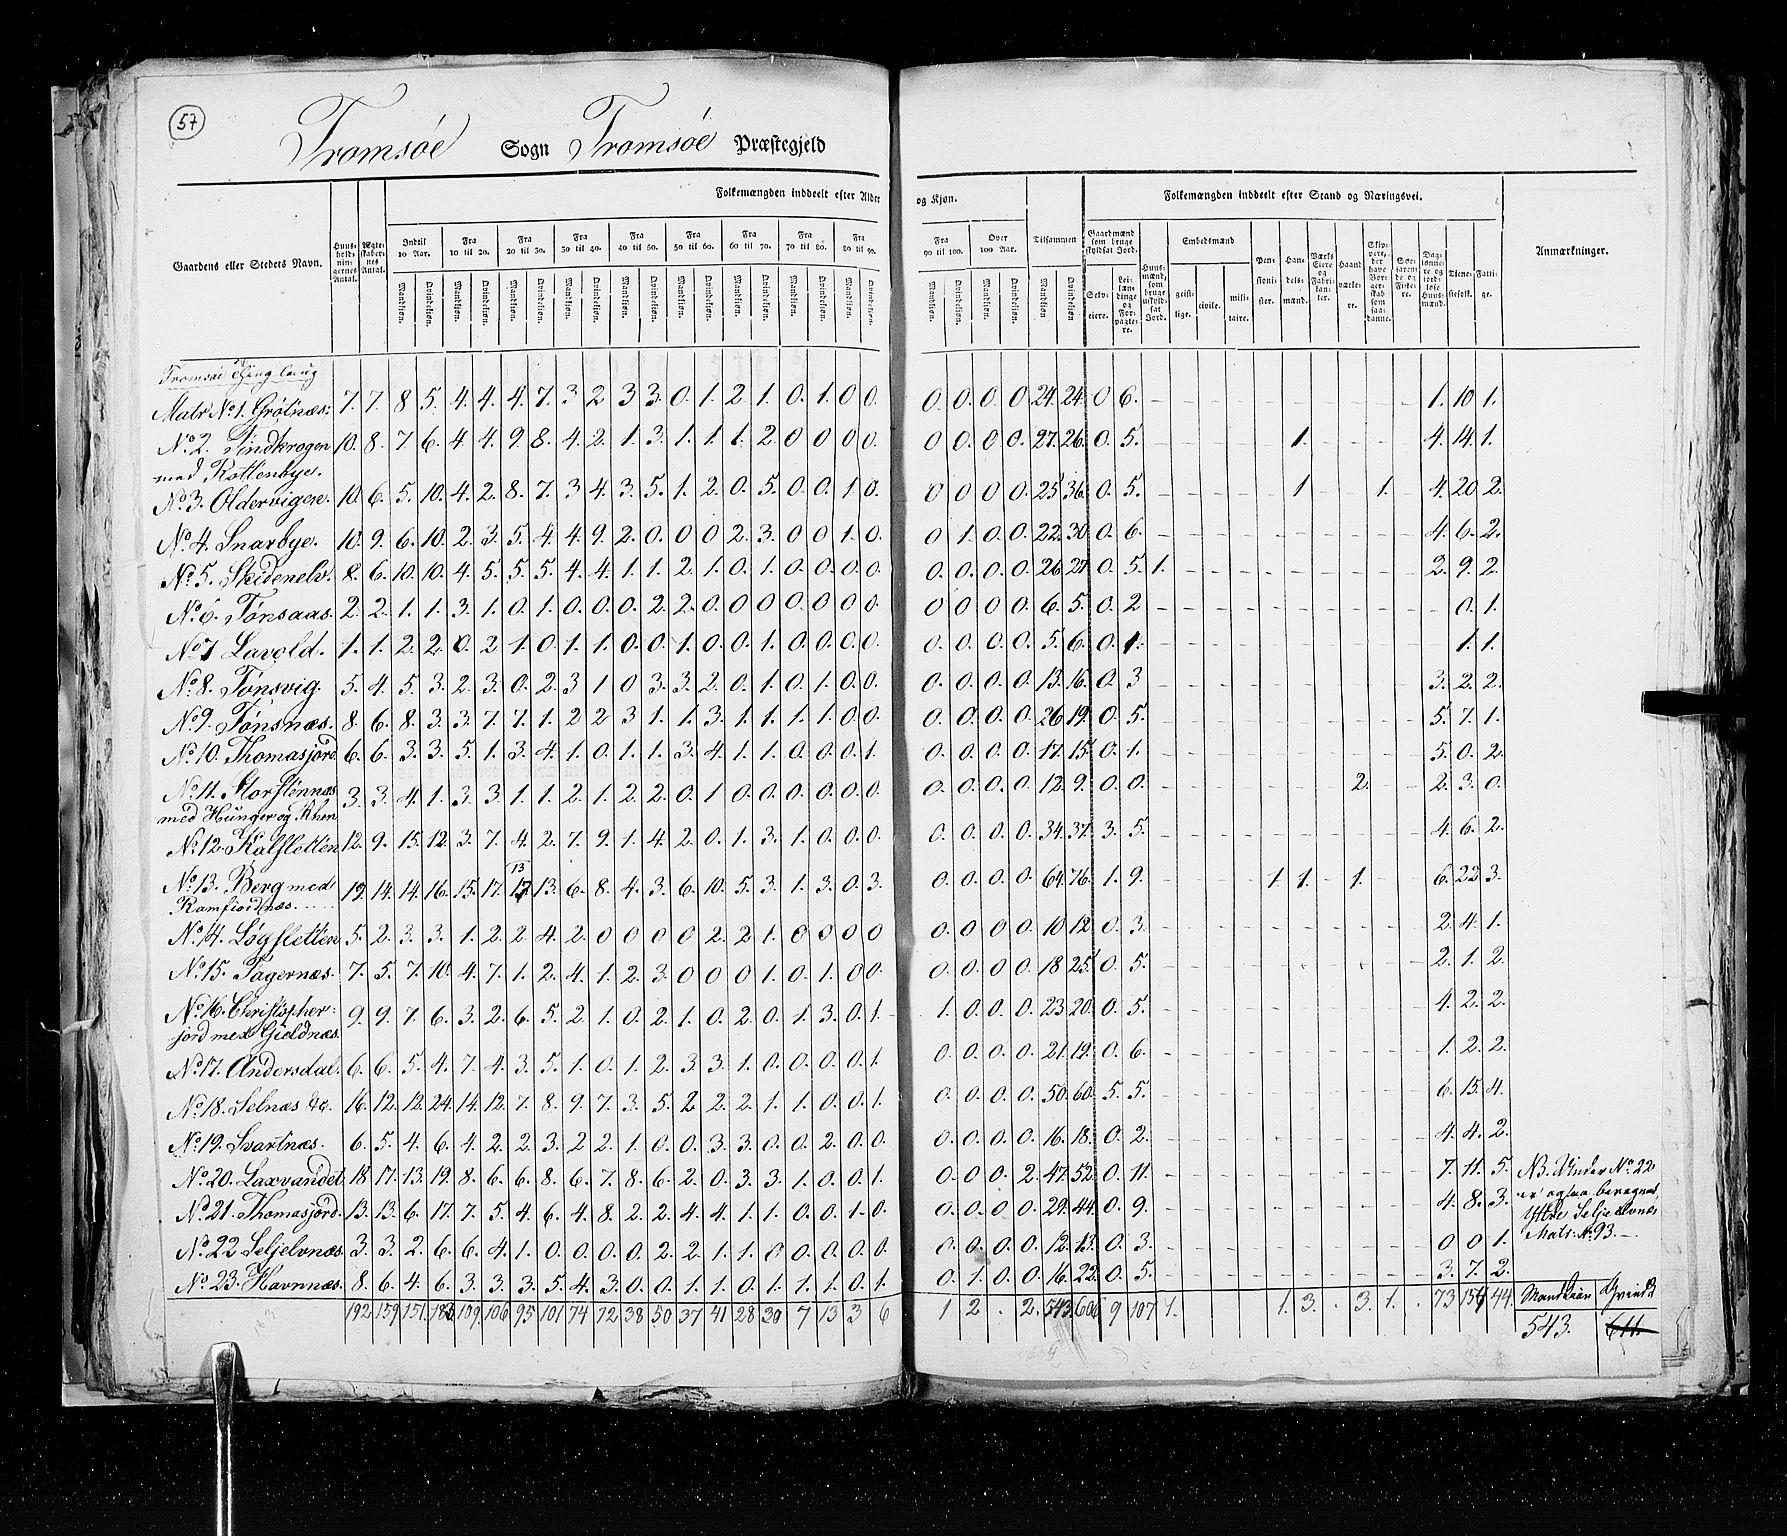 57
Tromsöe Sogn Tromsöe Præstegjeld
Folkemængden inddeelt efter Alder og Kjøn.
Folkemængden inddeelt efter Stand og Næringsvei.
Gaardens eller Stedets Navn.
Huus-holdnin-gernes Antal.
Ægte-skaber-nes Antal.
Indtil 10 Aar. Fra 10 til 20. Fra 20 til 30. Fra 30 til 40. Fra 40 til 50. Fra 50 til 60. Fra 60 til 70. Fra 70 til 80. Fra 80 til 90. Fra 90 til 100. Over 100 Aar. Tilsammen
Mandkjøn. Qvindekjøn.
Gaardmænd som bruge skyldsat Jord. Selv-eiere. Lei-lændinge og For-pagte-re.
Huus-mænd, som bruge uskyld-sat Jord.
Embedsmænd geist-lige. civile. mili-taire.
Pen-sioni-ster. Han-dels-mænd. Værks Eiere og Fabri-kanter. Haand-værke-re. Skip-pere, der have Bor-gerskab som saa-danne. Søe-farende og Fiske-re. Dag-lønne-re og jord-løse Huus-mænd. Tiene-stefolk. Fatti-ge.
Anmærkninger.
Tromsøe Thinglaug
Matr No 1. Grøtnæs: 7. 7. 8 5. 4. 4. 4. 7. 3 2 3 3. 0. 1. 2. 1. 0. 1. 0 0. 0. 0. 0. 0. 24. 24. 0 6. 1. 10 1.
No 2. Tindkrogen 10. 8. 7 6. 4. 4. 9. 8. 4. 2. 1. 3. 1. 1. 1. 2. 0 0 0 0. 0 0. 0 0. 27. 26. 0. 5. 1. 4. 14. 1.
med Kottenbye.
No 3. Oldervigen. 10. 6. 5. 10. 4. 2. 8. 7. 3 4. 3. 5. 1. 2. 0. 5. 0 0. 1. 0. 0 0 0 0. 25 36. 0. 5. 1 1. 4. 20 2.
No 4. Snarbye. 10. 9. 6. 10. 2. 3. 5. 4. 4. 9. 2. 0. 0 0 2. 3. 0 0 1. 0. 0 1. 0. 0. 22. 30. 0. 6. 4. 6. 2.
No 5. Skidenelv. 8. 6. 10. 10. 4. 5. 5. 5. 4. 4. 1. 1. 2. 1. 0. 1. 0. 0. 0. 0. 0. 0. 0. 0. 26 27. 0. 5. 1. 2. 9. 2.
No 6. Tønsaas. 2. 2. 1. 1. 3. 1. 0. 1. 0. 0. 0. 2. 2. 0 0 0 0 0 0 0. 0 0 0 0. 6. 5. 0. 2 0. 1.
No 7 Lavold. 1. 1. 2. 2. 0. 2 1. 0. 1. 1. 0. 0. 1. 0. 0. 1. 0. 0. 0. 0 0. 0. 0. 0. 5. 6. 0. 1. 1. 1.
No 8. Tønsvig. 5. 4. 5. 3. 2. 3. 0. 2. 3 1 0 3 3. 2. 0. 1. 0. 1. 0. 0. 0. 0. 0. 0. 13. 16. 0. 3 3. 2. 2.
No 9. Tønsnæs. 8. 6. 8. 3. 3. 7. 7. 1. 2 2 3 1. 1. 3. 1. 1. 1. 1. 0 0. 0. 0. 0. 0. 26 19. 0. 5. 5. 7. 1.
No 10. Thomasjord 6. 6. 3. 3. 5. 1. 3. 4. 1. 0. 1. 1. 3. 4. 1. 1. 0. 0. 0. 1. 0. 0. 0. 0. 17. 15. 0. 1. 5. 0. 2.
No 11. Storstennæs 3. 3. 4. 1. 3. 3. 1. 1. 2. 1. 2. 2. 0. 1 0. 0. 0. 0. 0. 0. 0. 0. 0. 0. 12. 9. 0. 0. 2. 2. 3. 0.
med Hunger og Rhen
No 12. Kalfsletten 12. 9. 15. 12. 3. 7. 4. 2. 7. 9. 1. 4. 2. 0. 1. 3. 1. 0. 0. 0. 0. 0. 0. 0. 34. 37. 3. 5. 4. 6. 2.
No 13. Berg med 19. 14. 14. 16. 15. 17. 13 13. 6. 8. 4. 3. 6. 10. 5. 3. 1. 3. 0. 3. 0. 0. 0. 0. 64. 76. 1. 9. 1. 1. 1. 6. 22 3.
Ramfiordnæs.
No 14. Løgsletten 5. 2. 3. 3. 1. 2. 2. 4. 2. 0 0 0 0 2. 2. 1. 0 0 0 0 0. 0. 0 0. 10 12. 0. 3. 2. 4. 1.
No 15. Fagernæs. 7. 5. 7. 10. 4. 7. 1. 2. 4. 1. 2. 3. 0 0 0 1. 0. 1. 0 0. 0. 0. 0 0. 18 25. 0. 5. 2. 1. 2.
No 16. Christopher- 9. 9. 7. 6. 3. 2. 6. 5. 2. 1. 0. 2. 1. 0. 2. 0. 1. 3. 0. 1 1. 0. 0. 0. 23 20. 0. 5. 4. 2. 2.
jord med Gjeldnæs.
No 17. Andersdal. 6. 6. 5. 4. 7. 4. 3. 5. 1. 0. 1. 2. 3 3. 1. 0. 0. 0. 0. 1. 0. 0. 0. 0. 21. 19. 0. 6. 1. 2. 2.
No 18. Selnæs &c. 16. 12. 12. 24. 14. 12. 7. 8. 9. 7. 3. 5. 2 2. 2. 1. 1. 0. 0. 1. 0. 0. 0. 0. 50. 60. 5. 5. 6. 15. 4.
No 19. Svartnæs. 6. 5. 4. 6. 4. 2. 2. 3. 2 2. 1. 0. 0. 3. 3. 0. 0. 2. 0. 0. 0. 0. 0. 0. 16. 18. 0. 2. 4. 4. 2.
No 20. Laxvandet 18 17. 13. 19. 8. 6. 6. 8. 6. 7. 8. 6. 2. 0. 3. 3. 1. 0. 0. 1 0. 0. 0. 2. 47. 52. 0. 11. 7. 11. 5. NB. Under No 22
No 21. Thomasjord. 13. 13. 6. 17. 7. 5. 4. 6. 4. 8. 2. 2. 4. 4. 1. 1. 0. 0. 1. 0. 0. 0. 0. 0. 29. 44. 0. 9. 4. 8. 3. er ogsaa beregnet
Yttre Seljeelvnæs
No 22 Seljelvnæs. 3. 3. 2. 6. 6. 4. 1. 0. 0. 0. 0. 2. 2. 1. 1. 0 0. 0. 0. 0. 0. 0. 0. 0. 12. 13. 0. 3. 0 0 1. Matr: No 93.
No 23. Havnnæs. 8. 6. 4. 6. 3. 3. 3. 5. 4. 3. 0. 0. 1. 1. 0. 1. 1. 1. 0. 1. 0. 1. 0. 0. 16. 22. 0. 5. 3. 7. 2.
192 159 151. 186 109. 106 95 101 74 72 38 50 37 41 28 30 7 13 3 6 1 2 . 2. 543. 606 9 107 1. 1. 3. . 3. 1. . 73 154 44. Mandkiøn Qvindk
543. 611.